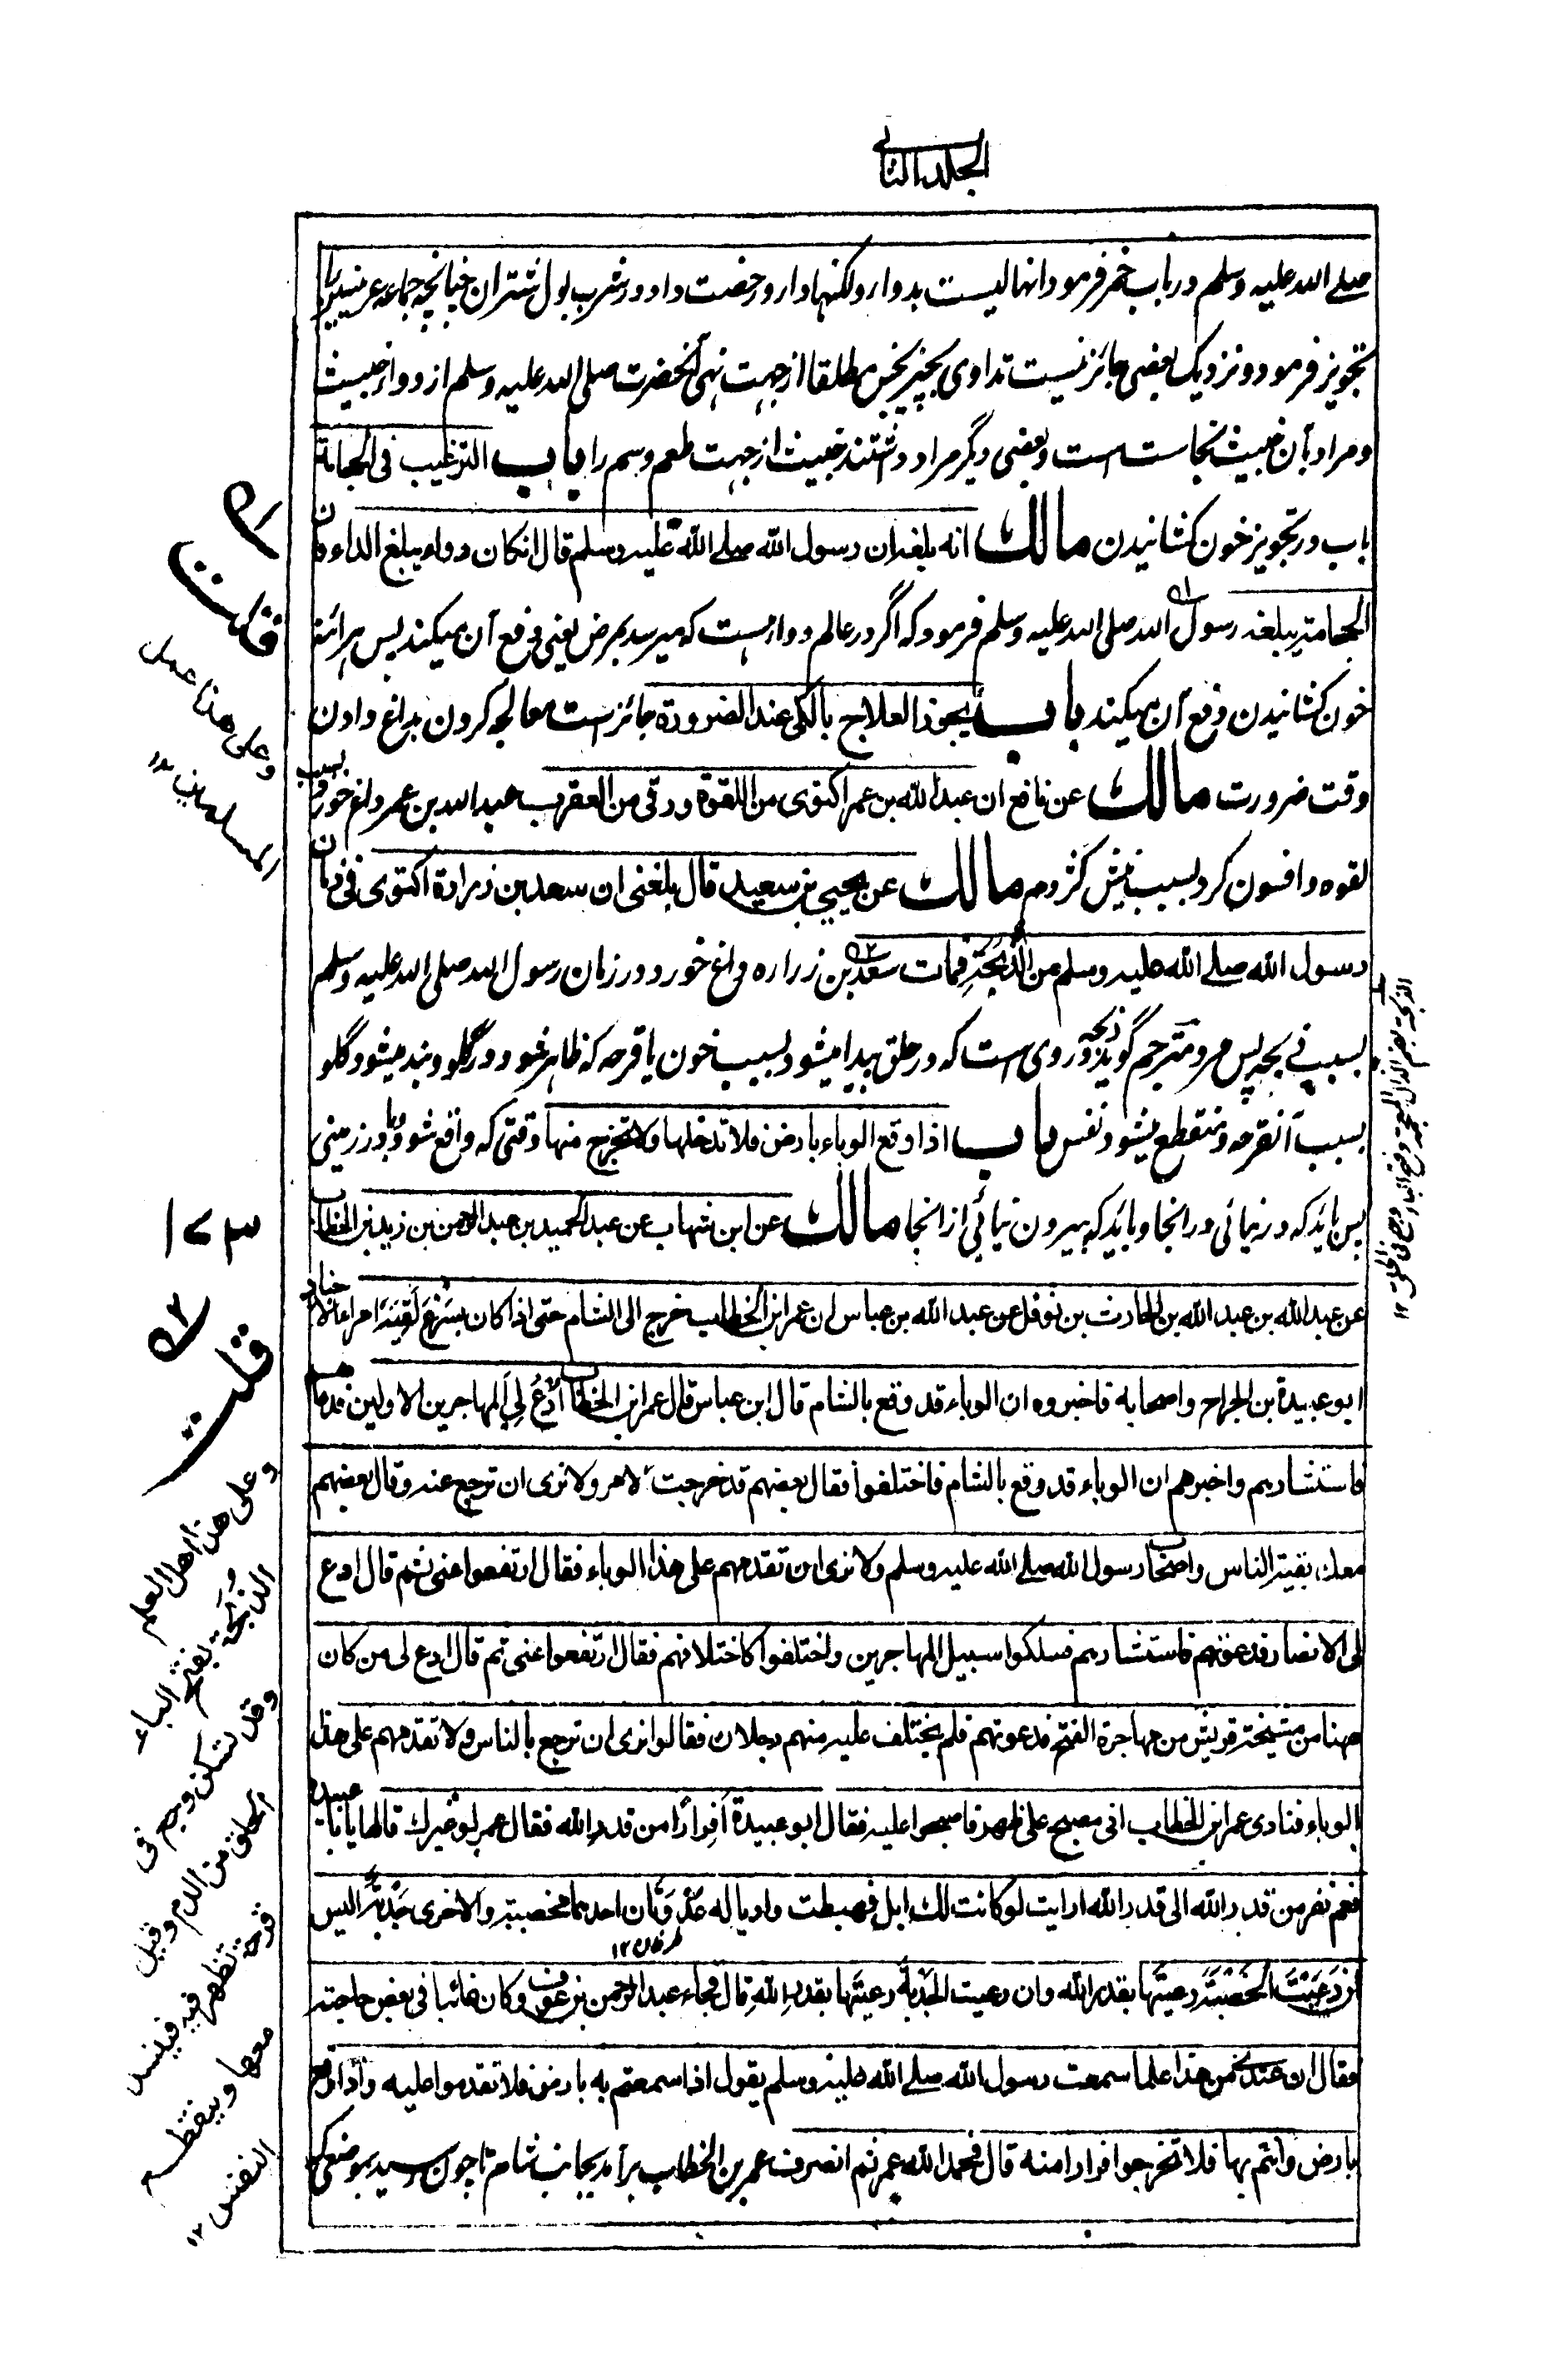 الجلد الثانی
صلے اللہ علیہ وسلم درباب خمر فرمود انہا لیست بدواء ولکنہا داء ورخصت داد در شرب بول شتران چنانچہ جماعہ عرنیین را
تجویز فرمود و نزدیک بعضی جائز نیست تداوی بچیز نجس مطلقا از جہت نہی آنحضرت صلی اللہ علیہ وسلم از دواء خبیث
ومراد بآن خبیث نجاست است وبعضی دیگر مراد داشتند خبیث از جہت طعم وسم را باب الترغیب فی الحجامة
باب در تجویز خون کشانیدن مالك انه بلغه ان رسول الله صلے الله علیه وسلم قال ان کان دواء یبلغ الداء فان
الحجامة یبلغه رسول اللہ صلی اللہ علیہ وسلم فرمود کہ اگر در عالم دواء ہست کہ میرسد بمرض یعنی دفع آن میکند پس ہرآئنہ
خون کشانیدن دفع آن میکند باب یجوز العلاج بالکی عند الضرورة جائز است معالجہ کردن بداغ دادن
وقت ضرورت مالك عن نافع ان عبد الله بن عمر اکتوی من اللقوة ورقی من العقرب عبد اللہ بن عمر داغ خورد بسبب
لقوہ وافسون کرد بسبب نیش کژدم مالك عن یحیی بن سعید قال بلغنی ان سعد بن زرارة اکتوی فی زمان
رسول الله صلے الله علیه وسلم من الذُّبَحَةِ فمات سعد بن زرارہ داغ خورد در زمان رسول اللہ صلی اللہ علیہ وسلم
بسبب ذبحہ پس مرد مترجم گوید ذبحہ دردی است کہ در حلق پیدا میشود بسبب خون یا قرحہ کہ ظاہر شود در گلو وبند میشود گلو
بسبب آنقرحہ ومنقطع میشود نفس باب اذا وقع الوباء بارض فلا تدخلها ولا تخرج منها وقتی کہ واقع شود وبا در زمینی
پس باید کہ در نیائی در انجا وباید کہ بیرون نیائی از انجا مالك عن ابن شهاب عن عبد الحمید بن عبد الرحمن بن زید بن الخطاب
عن عبد الله بن عبد الله بن الحارث بن نوفل عن عبد الله بن عباس ان عمر ابن الخطاب خرج الی الشام حتی اذا کان بسَرْغَ لَقِیَهُ امراء الاجناد
ابو عبیدة بن الجراح واصحابه فاخبروه ان الوباء قد وقع بالشام قال ابن عباس قال عمر ابن الخطاب اُدْعُ لِیَ المهاجرین الاولین فدعاهم
فاستشارهم واخبرهم ان الوباء قد وقع بالشام فاختلفوا فقال بعضهم قد خرجت لامر ولا نری ان ترجع عنه وقال بعضهم
معك بقیة الناس واصحاب رسول الله صلے الله علیه وسلم ولا نری ان تقدمهم علی هذا الوباء فقال ارتفعوا عنی ثم قال ادع
لی الانصار فدعوتهم فاستشارهم فسلکوا سبیل المهاجرین واختلفوا کاختلافهم فقال ارتفعوا عنی ثم قال ادع لی من کان
ههنا من مشیخة قریش من مهاجرة الفتح فدعوتهم فلم یختلف علیه منهم رجلان فقالوا نری ان ترجع بالناس ولا تقدمهم علی هذا
الوباء فنادی عمر ابن الخطاب انی مصبح علی ظهر فاصبحوا علیه فقال ابو عبیدة اَفِرارًا من قدر الله فقال عمر لو غیرك قالها یا ابا عبیدة
نعم نفر من قدر الله الی قدر الله ارایت لو کانت لك ابل فهبطت وادیا له عُدْوَتَان احدهما مخصبة والاخری جَدْبَةٌ الیس
طرفان ۱۲
ان رَعَیْتَ الخَصْبَةَ رعیتَها بقدر الله وان رعیت الجَدْبَةَ رعیتَها بقدر الله قال فجاء عبد الرحمن بن عوف وکان غائبا فی بعض حاجته
فقال ان عندی من هذا علما سمعت رسول الله صلے الله علیه وسلم یقول اذا سمعتم به بارض فلا تقدموا علیه واذا وقع
بارض وانتم بها فلا تخرجوا فرارا منه قال فحمد الله عمر ثم انصرف عمر بن الخطاب برآمد بجانب شام تا چون رسید بموضعی کہ
قلت
وعلی هذا عمل
المسلمین ۱۲
قلت
وعلی هذا اهل العلم
الذُّبَحَة بفتح الباء
وقد تسکن وجع فی
الحلق من الدم وقیل
قرحة تظهر فیه فینسد
معها وینقطع
النفس ۱۲
الذبحة بضم الذال المعجمة وفتح الباء وجع فی الحلق ۱۲